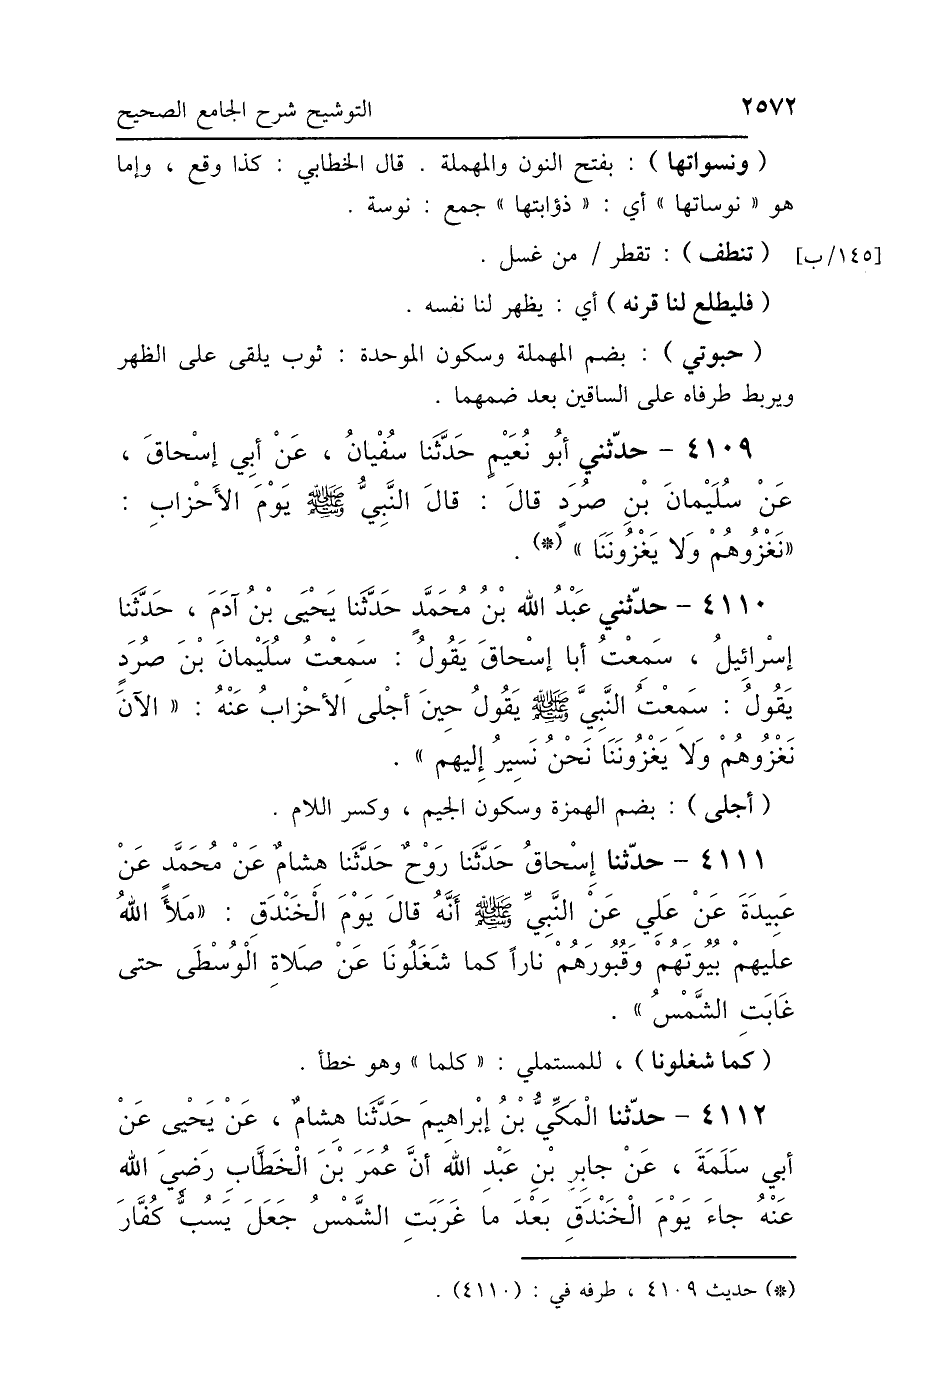 ٢٥٧٢ التوشيح شرح الجامع الصحيح
( ونسواتها ) : بفتح النون والمهملة . قال الخطابي : كذا وقع ، وإما
هو « نوساتها » أي : « ذؤابتها » جمع : نوسة .
[١٤٥/ب] ( تنطف ) : تقطر / من غسل .
( فليطلع لنا قرنه ) أي : يظهر لنا نفسه .
( حبوتي ) : بضم المهملة وسكون الموحدة : ثوب يلقى على الظهر
ويربط طرفاه على الساقين بعد ضمهما .
٤١٠٩ - حدّثني أَبُو نُعَيْمٍ حَدَّثَنا سُفْيانُ ، عَنْ أبي إسْحاقَ ،
عَنْ سُلَيْمانَ بْنِ صُرَدٍ قالَ : قالَ النَّبِيُّ ﷺ يَوْمَ الأَحْزابِ :
«نَغْزُوهُمْ وَلا يَغْزُونَنَا » (*) .
٤١١٠ - حدّثني عَبْدُ الله بْنُ مُحَمَّدٍ حَدَّثَنا يَحْيَى بْنُ آدَمَ ، حَدَّثَنا
إسْرائِيلُ ، سَمِعْتُ أبا إسْحاقَ يَقُولُ : سَمِعْتُ سُلَيْمانَ بْنَ صُرَدٍ
يَقُولُ : سَمِعْتُ النَّبِيَّ ﷺ يَقُولُ حِينَ أجْلى الأحْزابُ عَنْهُ : « الآنَ
نَغْزُوهُمْ وَلا يَغْزُونَنَا نَحْنُ نَسِيرُ إليهم » .
( أجلى ) : بضم الهمزة وسكون الجيم ، وكسر اللام .
٤١١١ - حدّثنا إسْحاقُ حَدَّثَنا رَوْحٌ حَدَّثَنا هِشامٌ عَنْ مُحَمَّدٍ عَنْ
عَبِيدَةَ عَنْ عَلي عَنْ النَّبِيِّ ﷺ أَنَّهُ قالَ يَوْمَ الْخَنْدَقِ : «مَلأَ اللهُ
عليهمْ بُيُوتَهُمْ وَقُبُورَهُمْ ناراً كما شَغَلُونَا عَنْ صَلاةِ الْوُسْطَى حتى
غَابَتِ الشَّمْسُ » .
( كما شغلونا ) ، للمستملي : « كلما » وهو خطأ .
٤١١٢ - حدّثنا الْمَكِّيُّ بْنُ إبْراهِيمَ حَدَّثَنا هِشامٌ ، عَنْ يَحْيى عَنْ
أبي سَلَمَةَ ، عَنْ جابِرِ بْنِ عَبْدِ الله أنَّ عُمَرَ بْنَ الْخَطَّابِ رَضِيَ الله
عَنْهُ جاءَ يَوْمَ الْخَنْدَقِ بَعْدَ ما غَرَبَتِ الشَّمْسُ جَعَلَ يَسُبُّ كُفَّارَ
(*) حديث ٤١٠٩ ، طرفه في : (٤١١٠) .